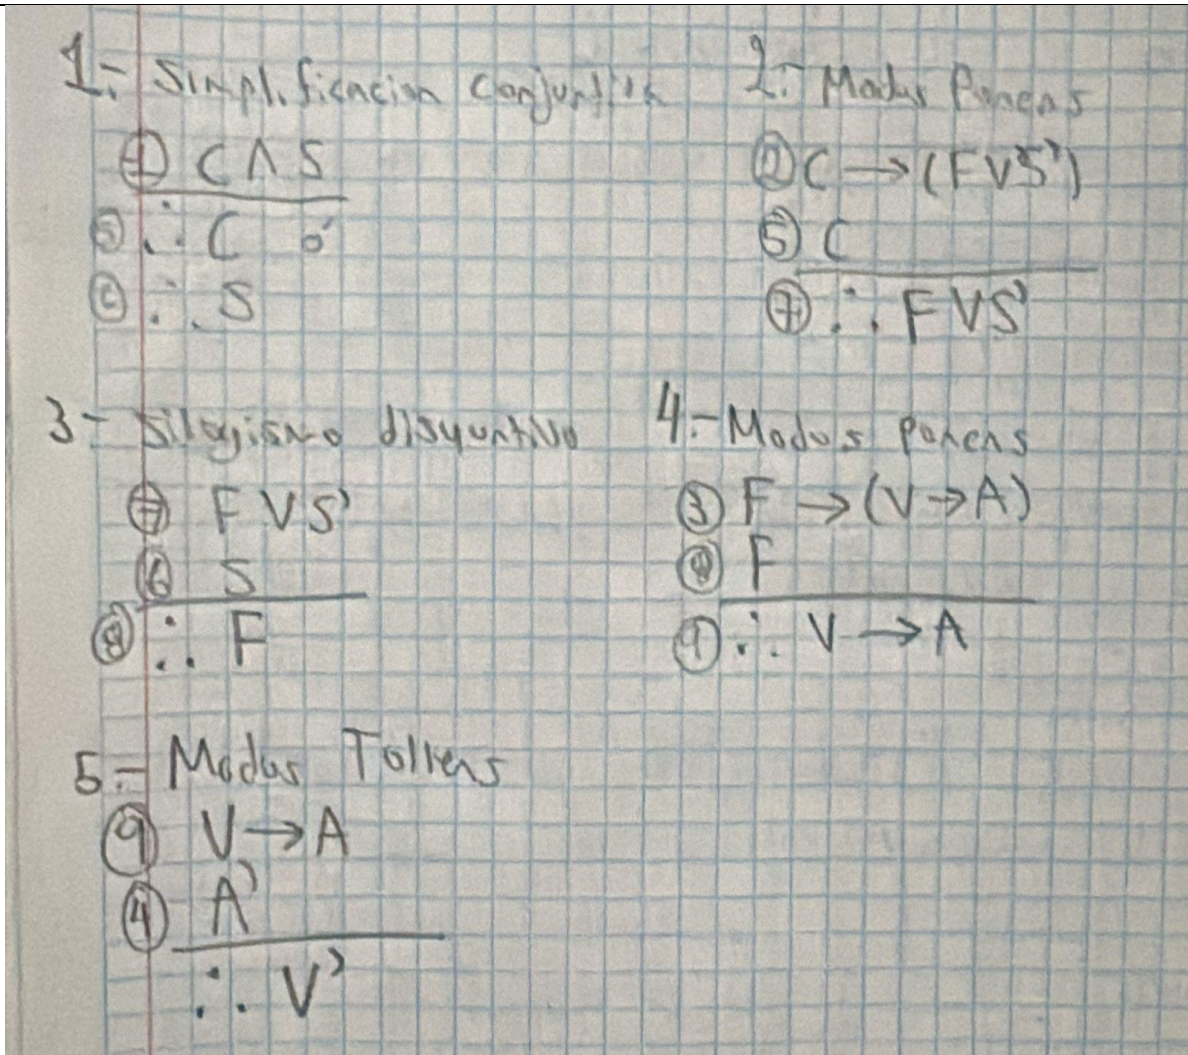 1.- Simplificacion Conjuntiva
① C ∧ S
⑤ ∴ C ó
⑥ ∴ S
2.- Modus Ponens
② C → (F ∨ S')
⑤ C
⑦ ∴ F ∨ S'
3- Silogismo disyuntivo
⑦ F ∨ S'
⑥ S
⑧ ∴ F
4.- Modus ponens
③ F → (V → A)
⑧ F
⑨ ∴ V → A
5.- Modus Tollens
⑨ V → A
④ A'
∴ V'